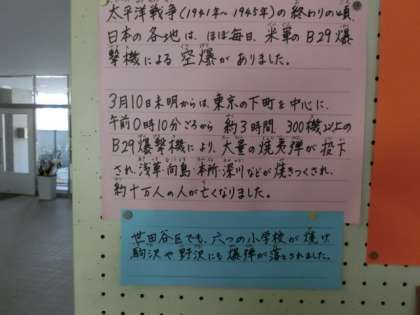 太平洋戦争(1941年～1945年)の終わりの頃、
日本の各地は、ほぼ毎日、米軍のB29爆
撃機による空爆がありました。
3月10日未明からは、東京の下町を中心に、
午前0時10分ごろから約3時間 300機以上の
B29爆撃機により、大量の焼夷弾が投下
され、浅草・向島・本所・深川などが焼きつくされ、
約十万人の人が亡くなりました。
世田谷区でも、六つの小学校が焼け
駒沢や野沢にも爆弾が落とされました。